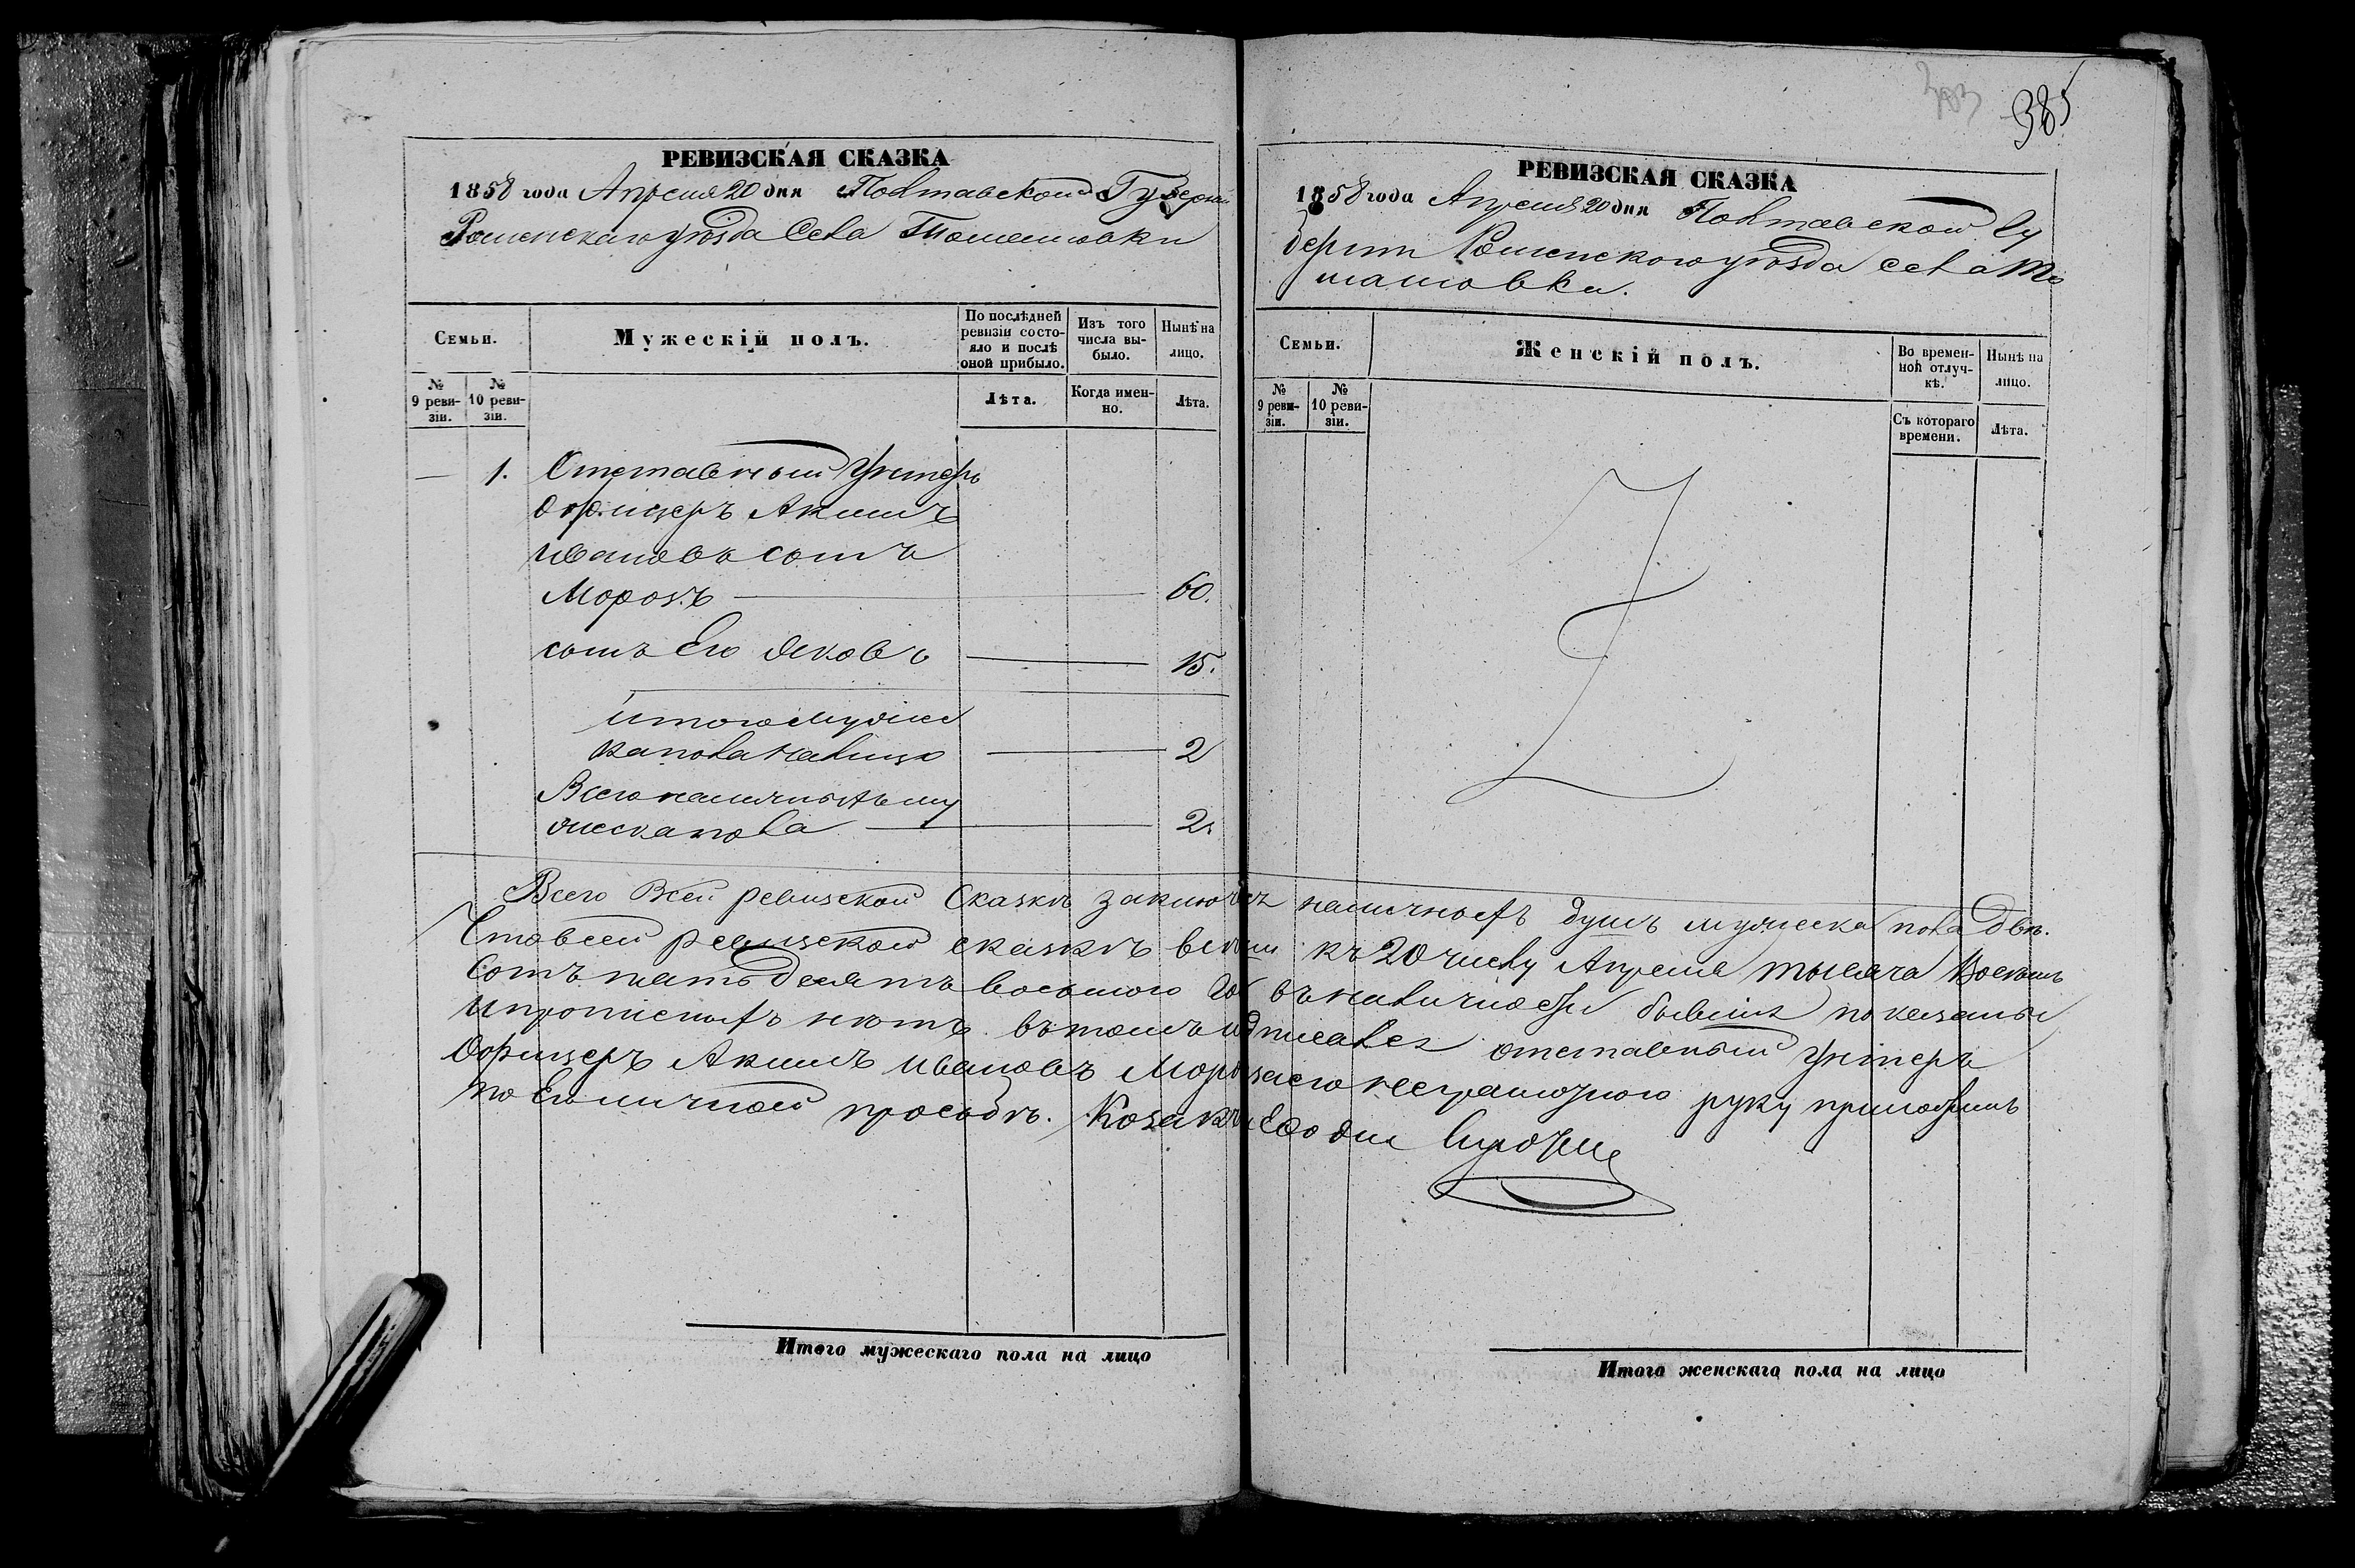 385
РЕВИЗСКАЯ СКАЗКА
1858 года Апреля 20 дня Полтавской Губерніи
Роменскаго уѣзда Села Томашовки
Семьи.
Мужескій полъ.
По послѣдней ревизіи состояло и послѣ оной прибыло.
Изъ того числа выбыло.
Нынѣ на лицо.
№ 9 ревизіи.
№ 10 ревизіи.
Лѣта.
Когда именно.
Лѣта.
— 1. Отставный Унтеръ
Офицеръ Акимъ
Ивановъ сынъ
Морозъ 60.
сынъ Его Яковъ 15.
Итого Муже
ска пола налицо 2
Всего наличныхъ му
жеска пола 2.
РЕВИЗСКАЯ СКАЗКА
1858 года Апреля 20 дня Полтавской Гу
берніи Роменского уѣзда села То
машовки.
Семьи.
Женскій полъ.
Во временной отлучкѣ.
Нынѣ на лицо.
№ 9 ревизіи.
№ 10 ревизіи.
Съ котораго времени.
Лѣта.
Всего Всей ревизской Сказкѣ наличныхъ душъ мужеска пола Двѣ.
Что всей ревизской сказкѣ всѣ къ 20 числу Апреля тысяча Восемь
Сотъ пятьдесятъ восьмого въ наличности бывшіе показаны
и прописныхъ нѣтъ. въ томъ отставный Унтеръ
Офицеръ Акимъ Ивановъ неграмотного руку приложилъ
по Его личной прозьбѣ. Козакъ
Итого мужескаго пола на лицо
Итого женскаго пола на лицо